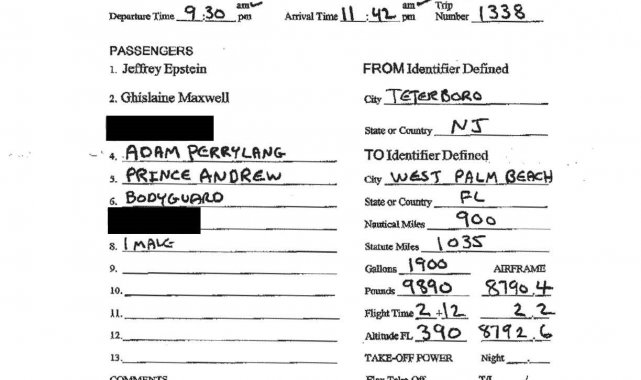 Departure Time 9:30 am pm Arrival Time 11:42 am pm Trip Number 1338
PASSENGERS
1. Jeffrey Epstein
2. Ghislaine Maxwell
4. ADAM PERRYLANG
5. PRINCE ANDREW
6. BODYGUARD
8. 1 MALE
9.
10.
11.
12.
13.
COMMENTS
FROM Identifier Defined
City TETERBORO
State or Country NJ
TO Identifier Defined
City WEST PALM BEACH
State or Country FL
Nautical Miles 900
Statute Miles 1035
Gallons 1900 AIRFRAME
Pounds 9890 8790.4
Flight Time 2+12 2.2
Altitude FL 390 8792.6
TAKE-OFF POWER Night
Flex Take Off